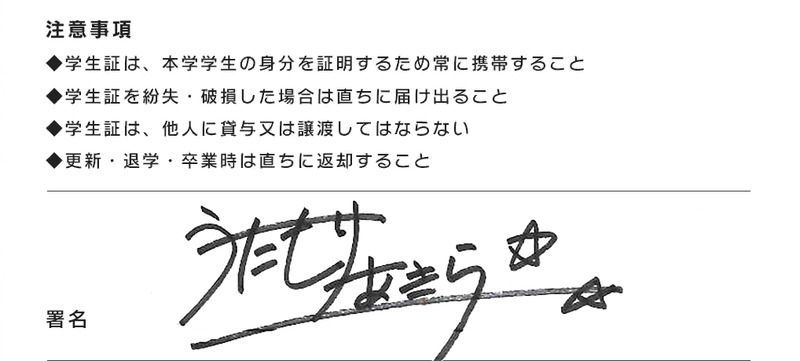 注意事項
◆学生証は、本学学生の身分を証明するため常に携帯すること
◆学生証を紛失・破損した場合は直ちに届け出ること
◆学生証は、他人に貸与又は譲渡してはならない
◆更新・退学・卒業時は直ちに返却すること
うたもり
あきら☆☆
署名